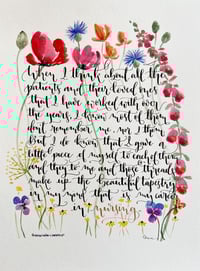 When I think about all the
patients and their loved ones
that I have worked with over
the years, I know most of them
don't remember me nor I them
But I do know that I gave a
little piece of myself to each of them
and they to me and those threads
make up the beautiful tapestry
in my mind that is my career
in nursing